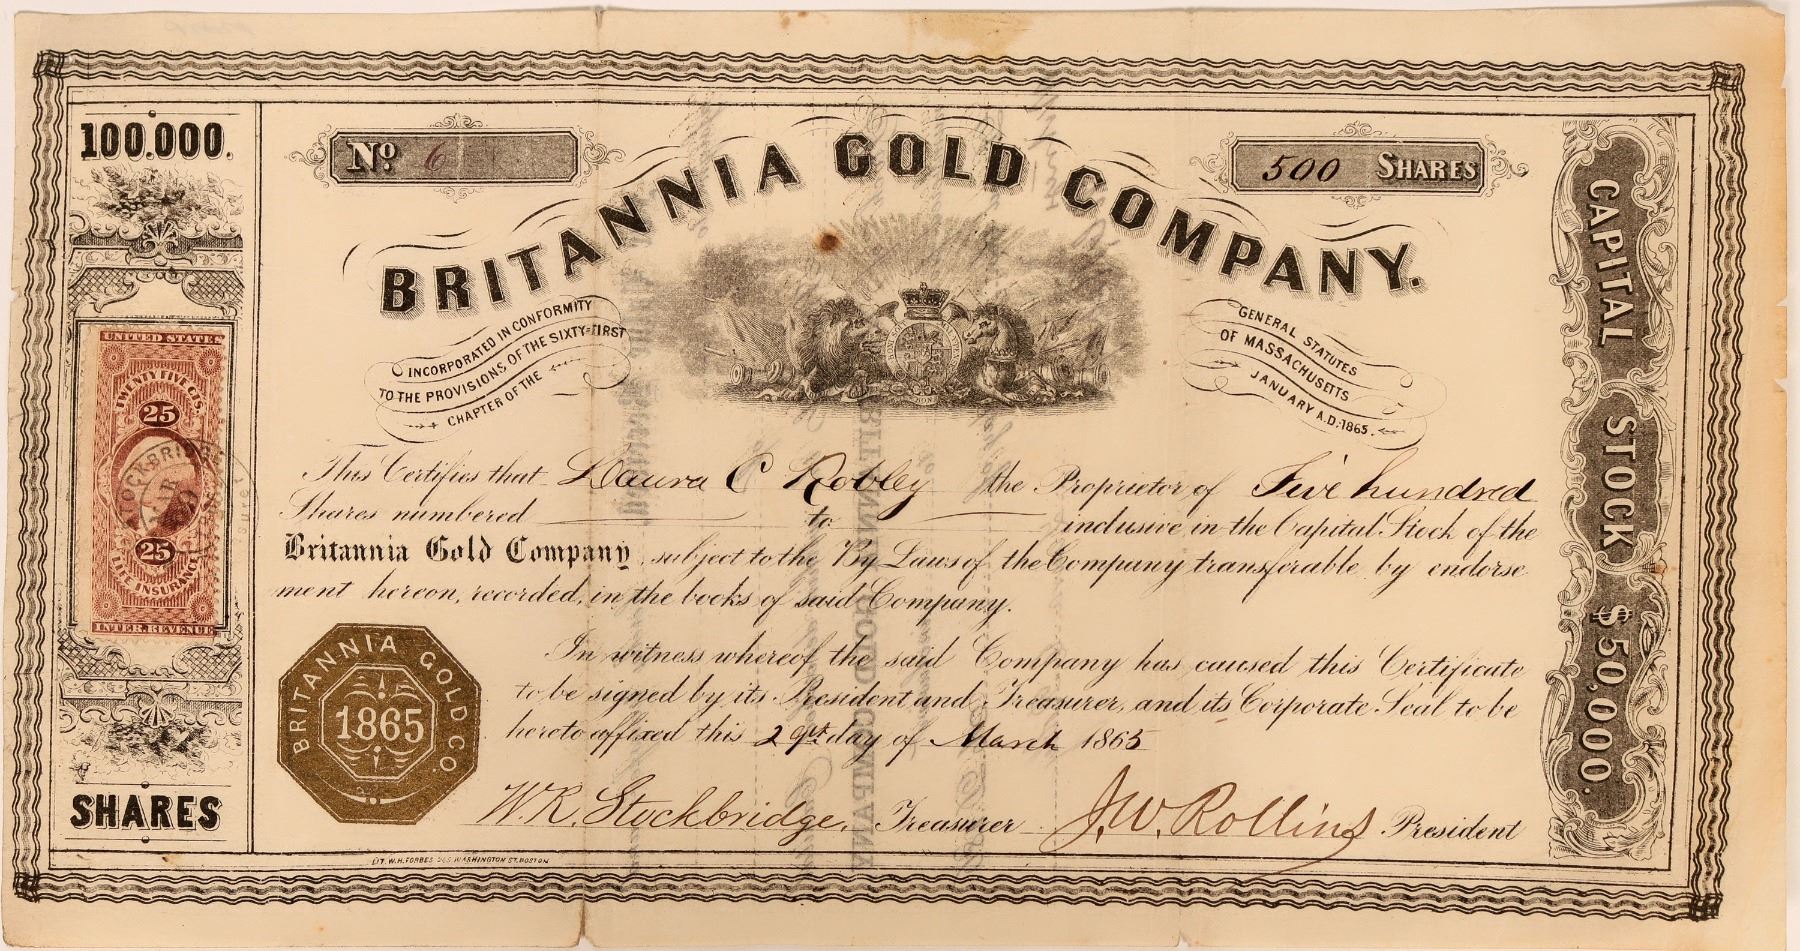 100.000.
No. 6
BRITANNIA GOLD COMPANY.
500 SHARES
INCORPORATED IN CONFORMITY
TO THE PROVISIONS, OF THE SIXTY-FIRST
CHAPTER OF THE
GENERAL STATUTES
OF MASSACHUSETTS
JANUARY A.D. 1865.
UNITED STATES
TWENTY FIVE CTS.
25
25
LIFE INSURANCE
INTER. REVENUE
STOCKBRIDGE
MAR
29
This Certifies that Laura C Robley the Proprietor of Five hundred
Shares numbered to inclusive in the Capital Stock of the
Britannia Gold Company, subject to the By Laws of the Company transferable by endorse
ment hereon, recorded, in the books of said Company.
In witness whereof the said Company has caused this Certificate
to be signed by its President and Treasurer, and its Corporate Seal to be
hereto affixed this 29th day of March 1865
BRITANNIA GOLD CO.
1865
W.R. Stockbridge, Treasurer J.W. Rollins President
SHARES
LIT. W.H. FORBES WASHINGTON ST. BOSTON
CAPITAL STOCK $50,000.